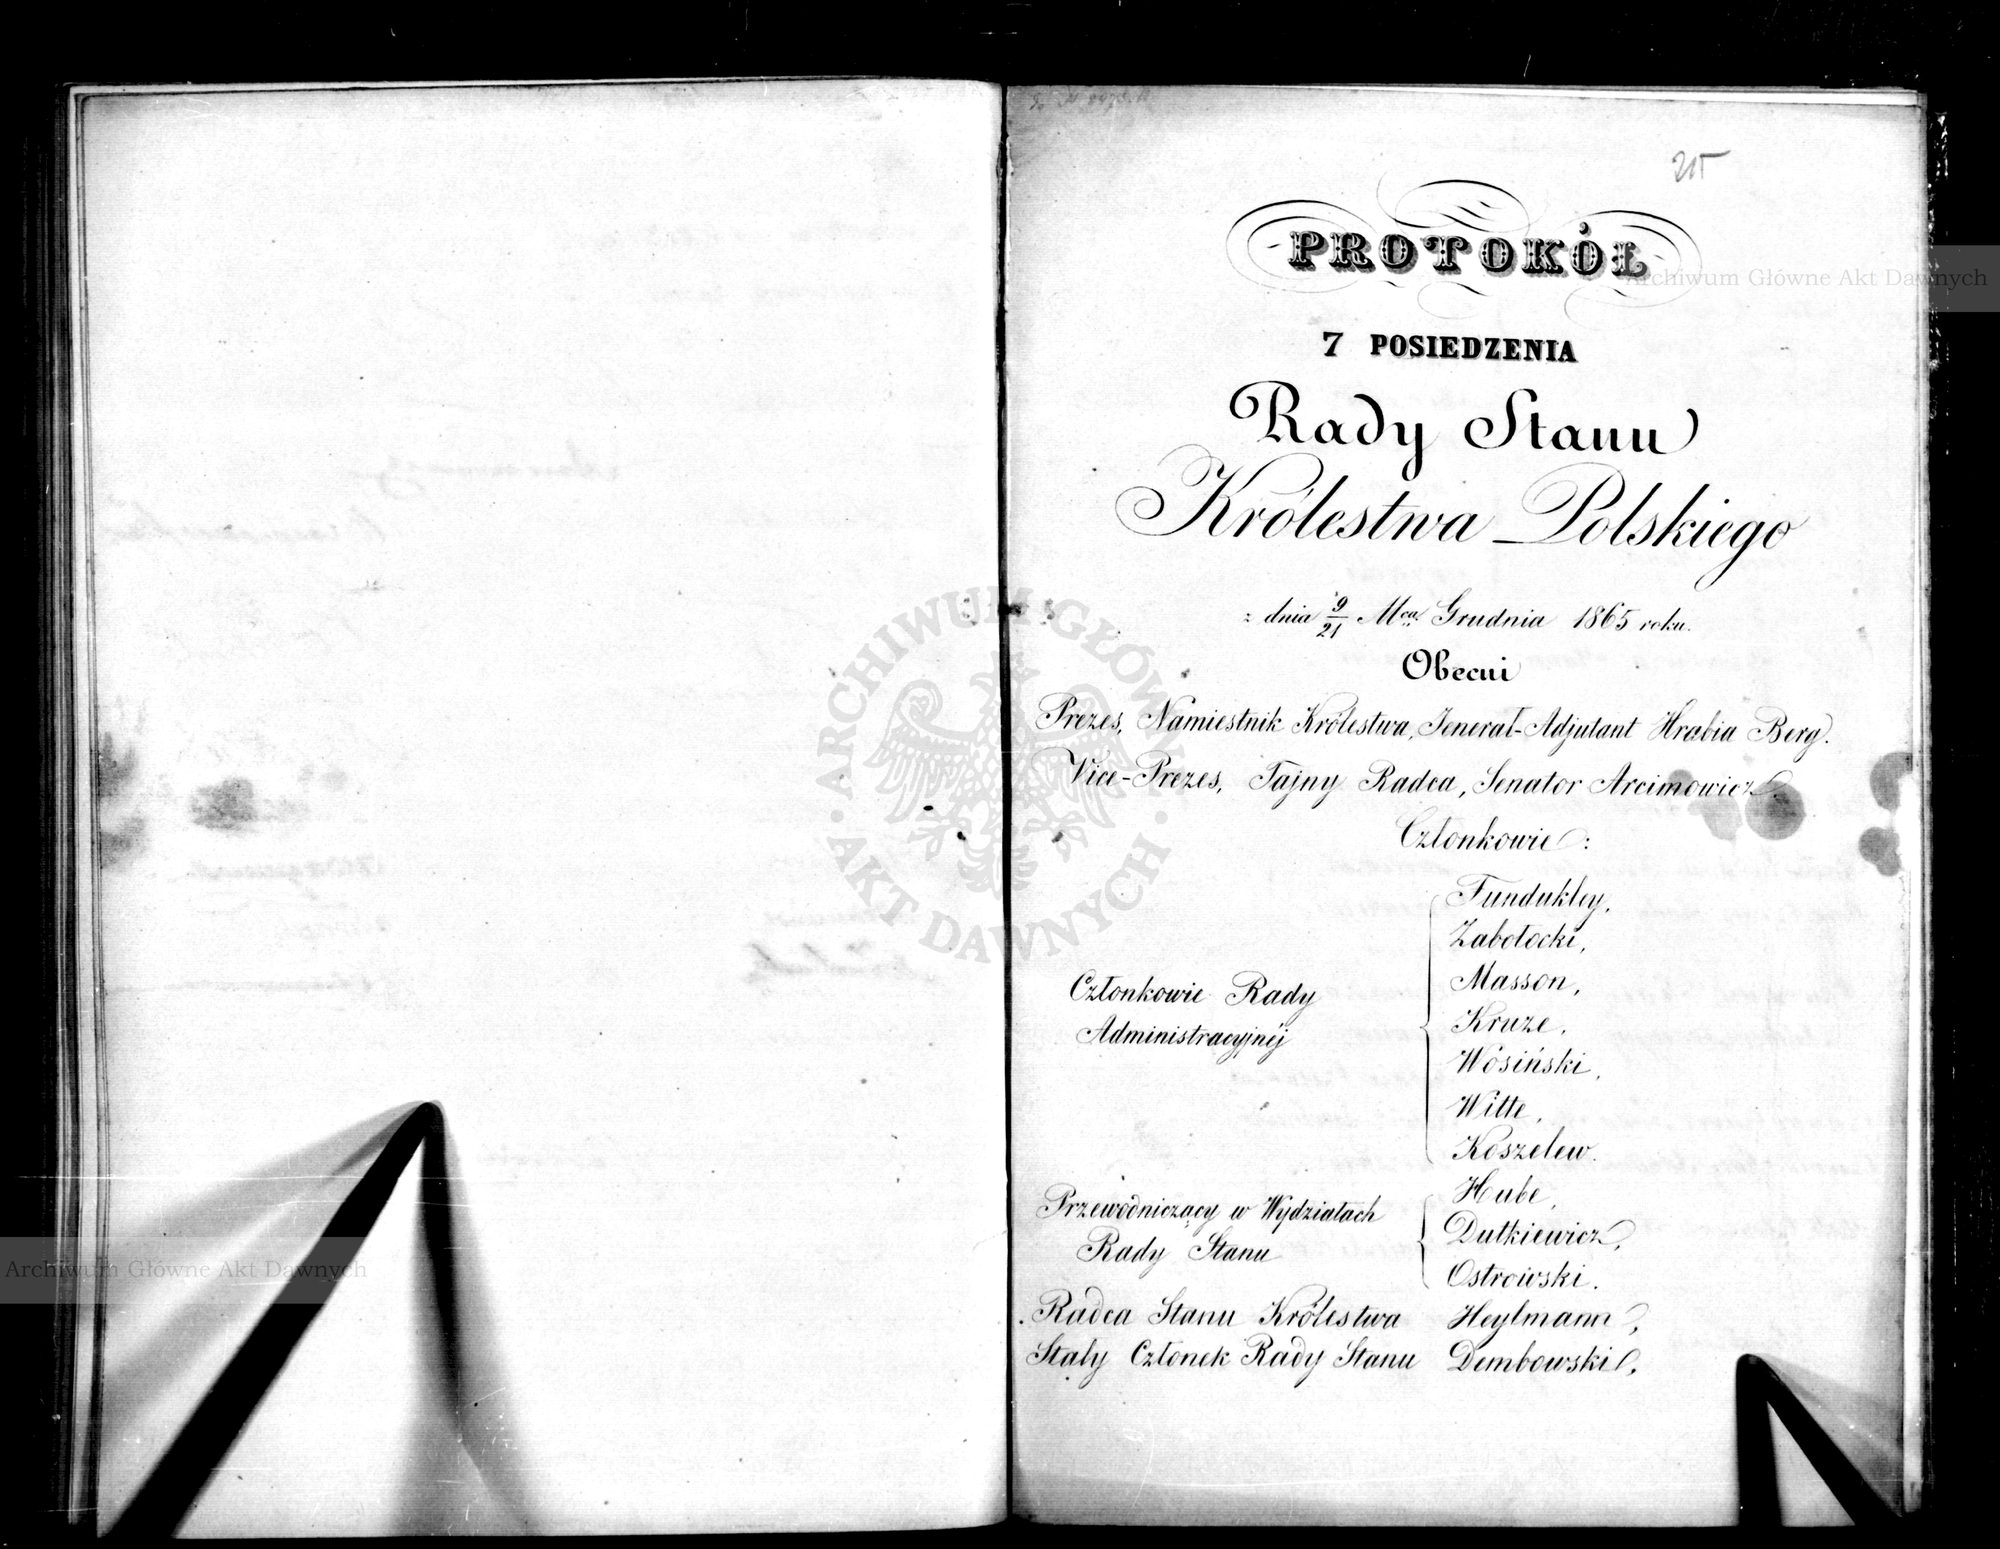 215
PROTOKÓŁ
7 POSIEDZENIA
Rady Stanu
Królestwa Polskiego
z dnia 9/21 Mca Grudnia 1865 roku.
Obecni
Prezes, Namiestnik Królestwa, Jenerał-Adjutant Hrabia Berg.
Vice-Prezes, Tajny Radca, Senator Arcimowicz.
Członkowie:
Członkowie Rady
Administracyjnéj
Fundukley,
Zabołocki,
Masson,
Kruze,
Wosiński,
Witte,
Koszelew.
Przewodniczący w Wydziałach
Rady Stanu
Hube,
Dutkiewicz,
Ostrowski.
Radca Stanu Królestwa Heylmann,
Stały Członek Rady Stanu Dembowski,
Archiwum Główne Akt Dawnych
ARCHIWUM GŁÓWNE AKT DAWNYCH
Archiwum Główne Akt Dawnych